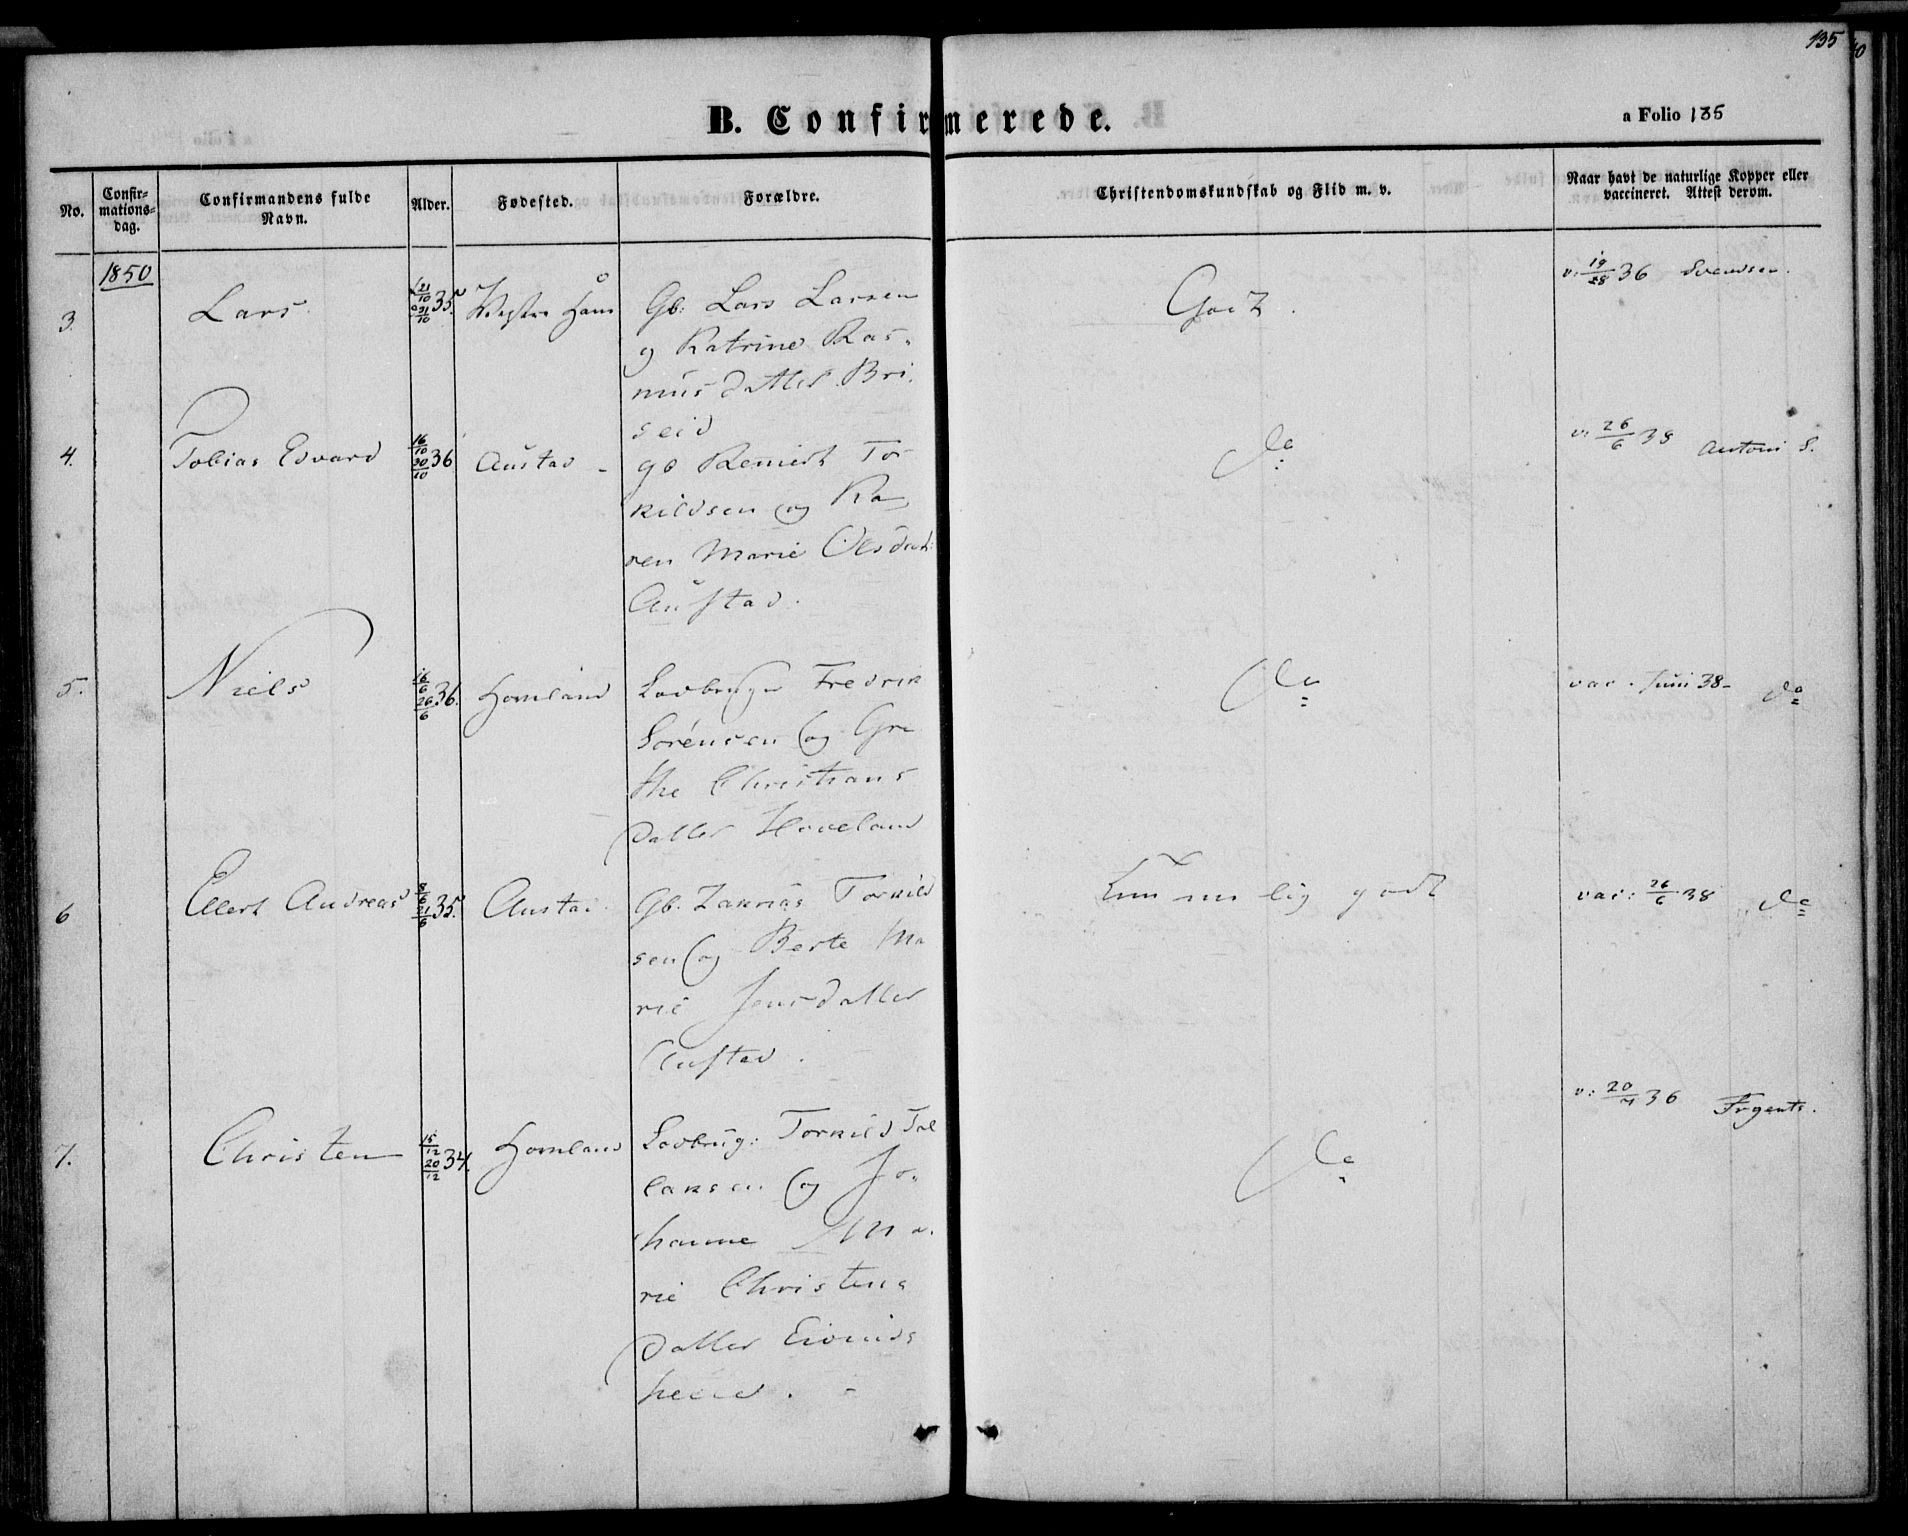 135
B. Confirmerede.
a Folio 135
No.
Confir-
mations-
dag.
Confirmandens fulde
Navn.
Alder.
Fødested.
Forældre.
Christendomskundskab og Flid m. v.
Naar havt de naturlige Kopper eller
vaccineret. Attest derom.
1850
3.
Lars.
21/10 35
31/10
Westre
Gb: Lars Larsen
og Katrine Ras-
musdatter Bri-
seid
Godt.
v: 19/28 36 Svendsen.
4.
Tobias Edvard
16/10 36
30/10
Austad -
gb Remert Tor-
kildsen og Ka-
ren Marie Olsdat:
Austad.
do
v: 26/6 38 Antoni S.
5.
Niels
16/6 36.
26/6
Homland
Lovbruger Fredrik
Sørensen og Gre
the Christians
datter Howeland
do
vac. Juni 38- do
6
Elert Andreas
8/6 35.
21/6
Austad
Gb. Zakrias Torkild
sen og Berte Ma
rie Jensdatter
Austad.
Temmelig godt
vac: 26/6 38 do
7.
Christen
15/12 34.
20/12
Homland
Lovbrug: Torkild Tol
laksen og Jo-
hanne Ma-
rie Christens
datter Eivinds
heia.
do
v: 20/7 36